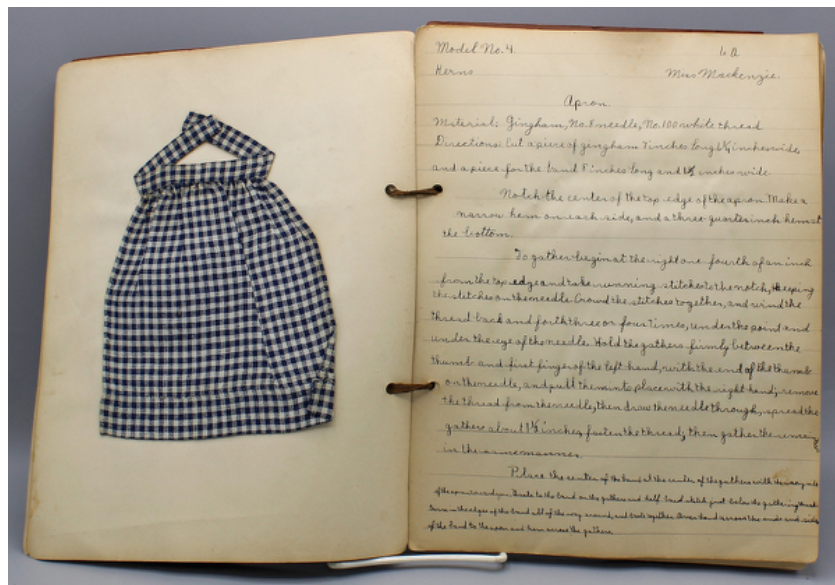 Model No. 4. 6 A
Kerns Miss Mackenzie.
Apron.
Material: Gingham, No. 8 needle, No. 100 white thread
Directions: Cut a piece of gingham 7 inches long inches wide,
and a piece for the band 8 inches long and inches wide.
Notch the center of the top edge of the apron. Make a
narrow hem on each side, and a three-quarter inch hem at
the bottom.
To gather begin at the right one fourth of an inch
from the top edge and take running stitches to the notch, keeping
the stitches on the needle. Crowd the stitches together, and wind the
thread back and forth three or four times, under the point and
under the eye of the needle. Hold the gathers firmly between the
thumb and first finger of the left hand, with the end of the thumb
on the needle, and pull them into place with the right hand; remove
the thread from the needle, then draw the needle through, spread the
gathers about inches, fasten the thread; then gather the
in the same manner.
Place the center of the band at the center of the gathers with the wrong side
of the apron Baste to the band on the gathers and half back stitch just below the gathering thread.
Turn in the edges of the band all of the way around, and baste together. Overhand across the ends and sides
of the band to the apron and hem across the gathers.